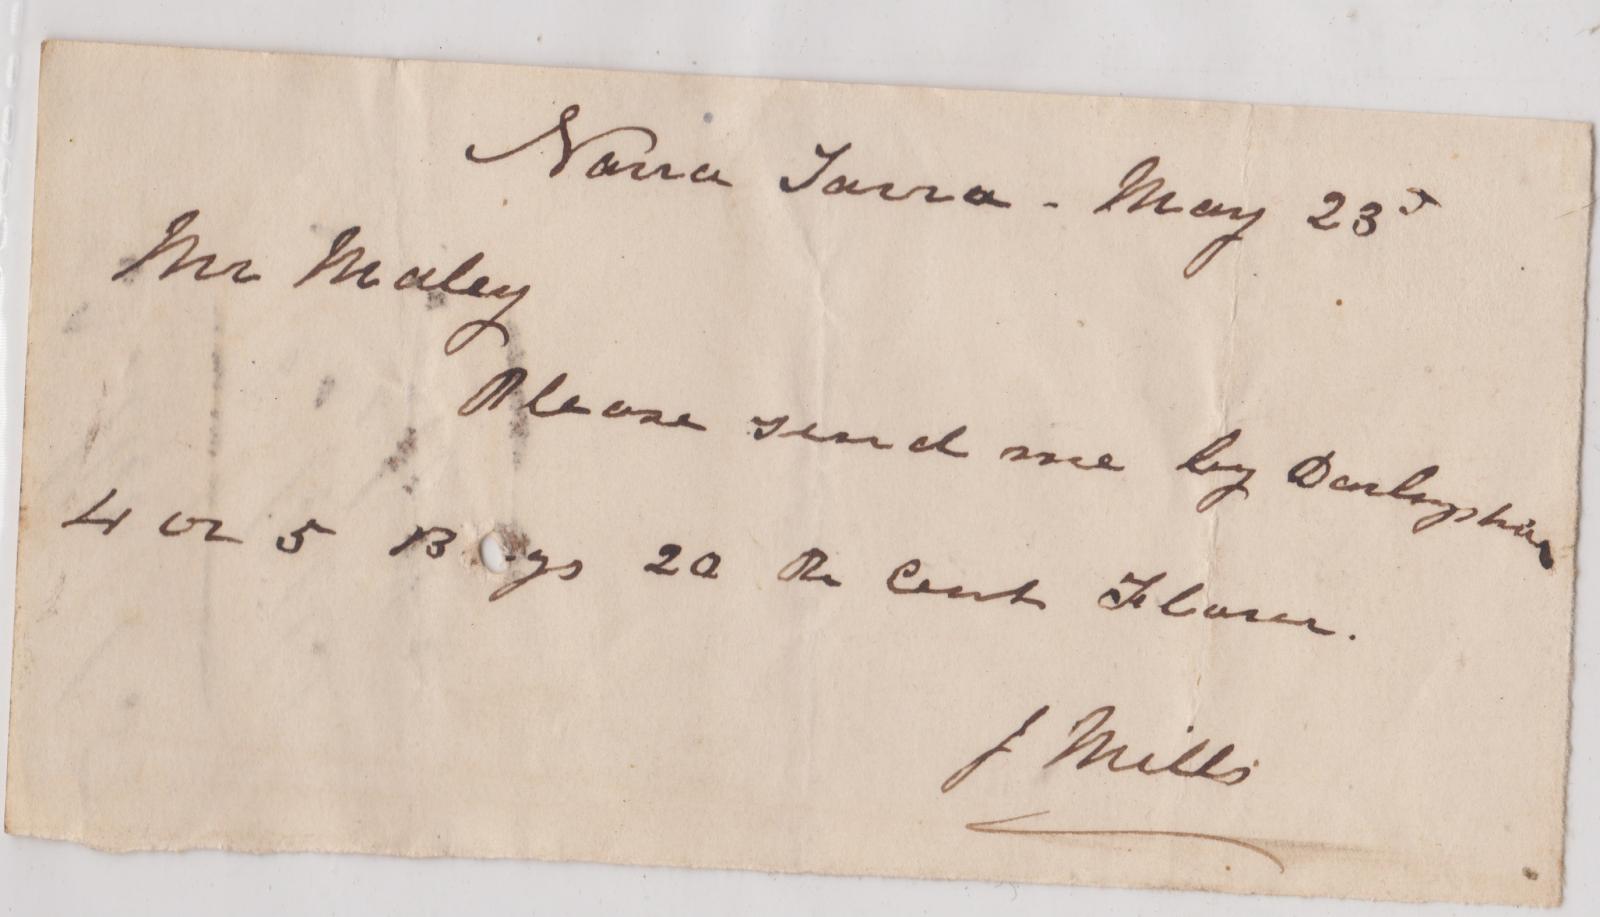 Narra Tarra - May 23d
Mr Maley
Please send me by Darbyshire
4 or 5 Bags 20 Pr Cent Flour.
J Mills